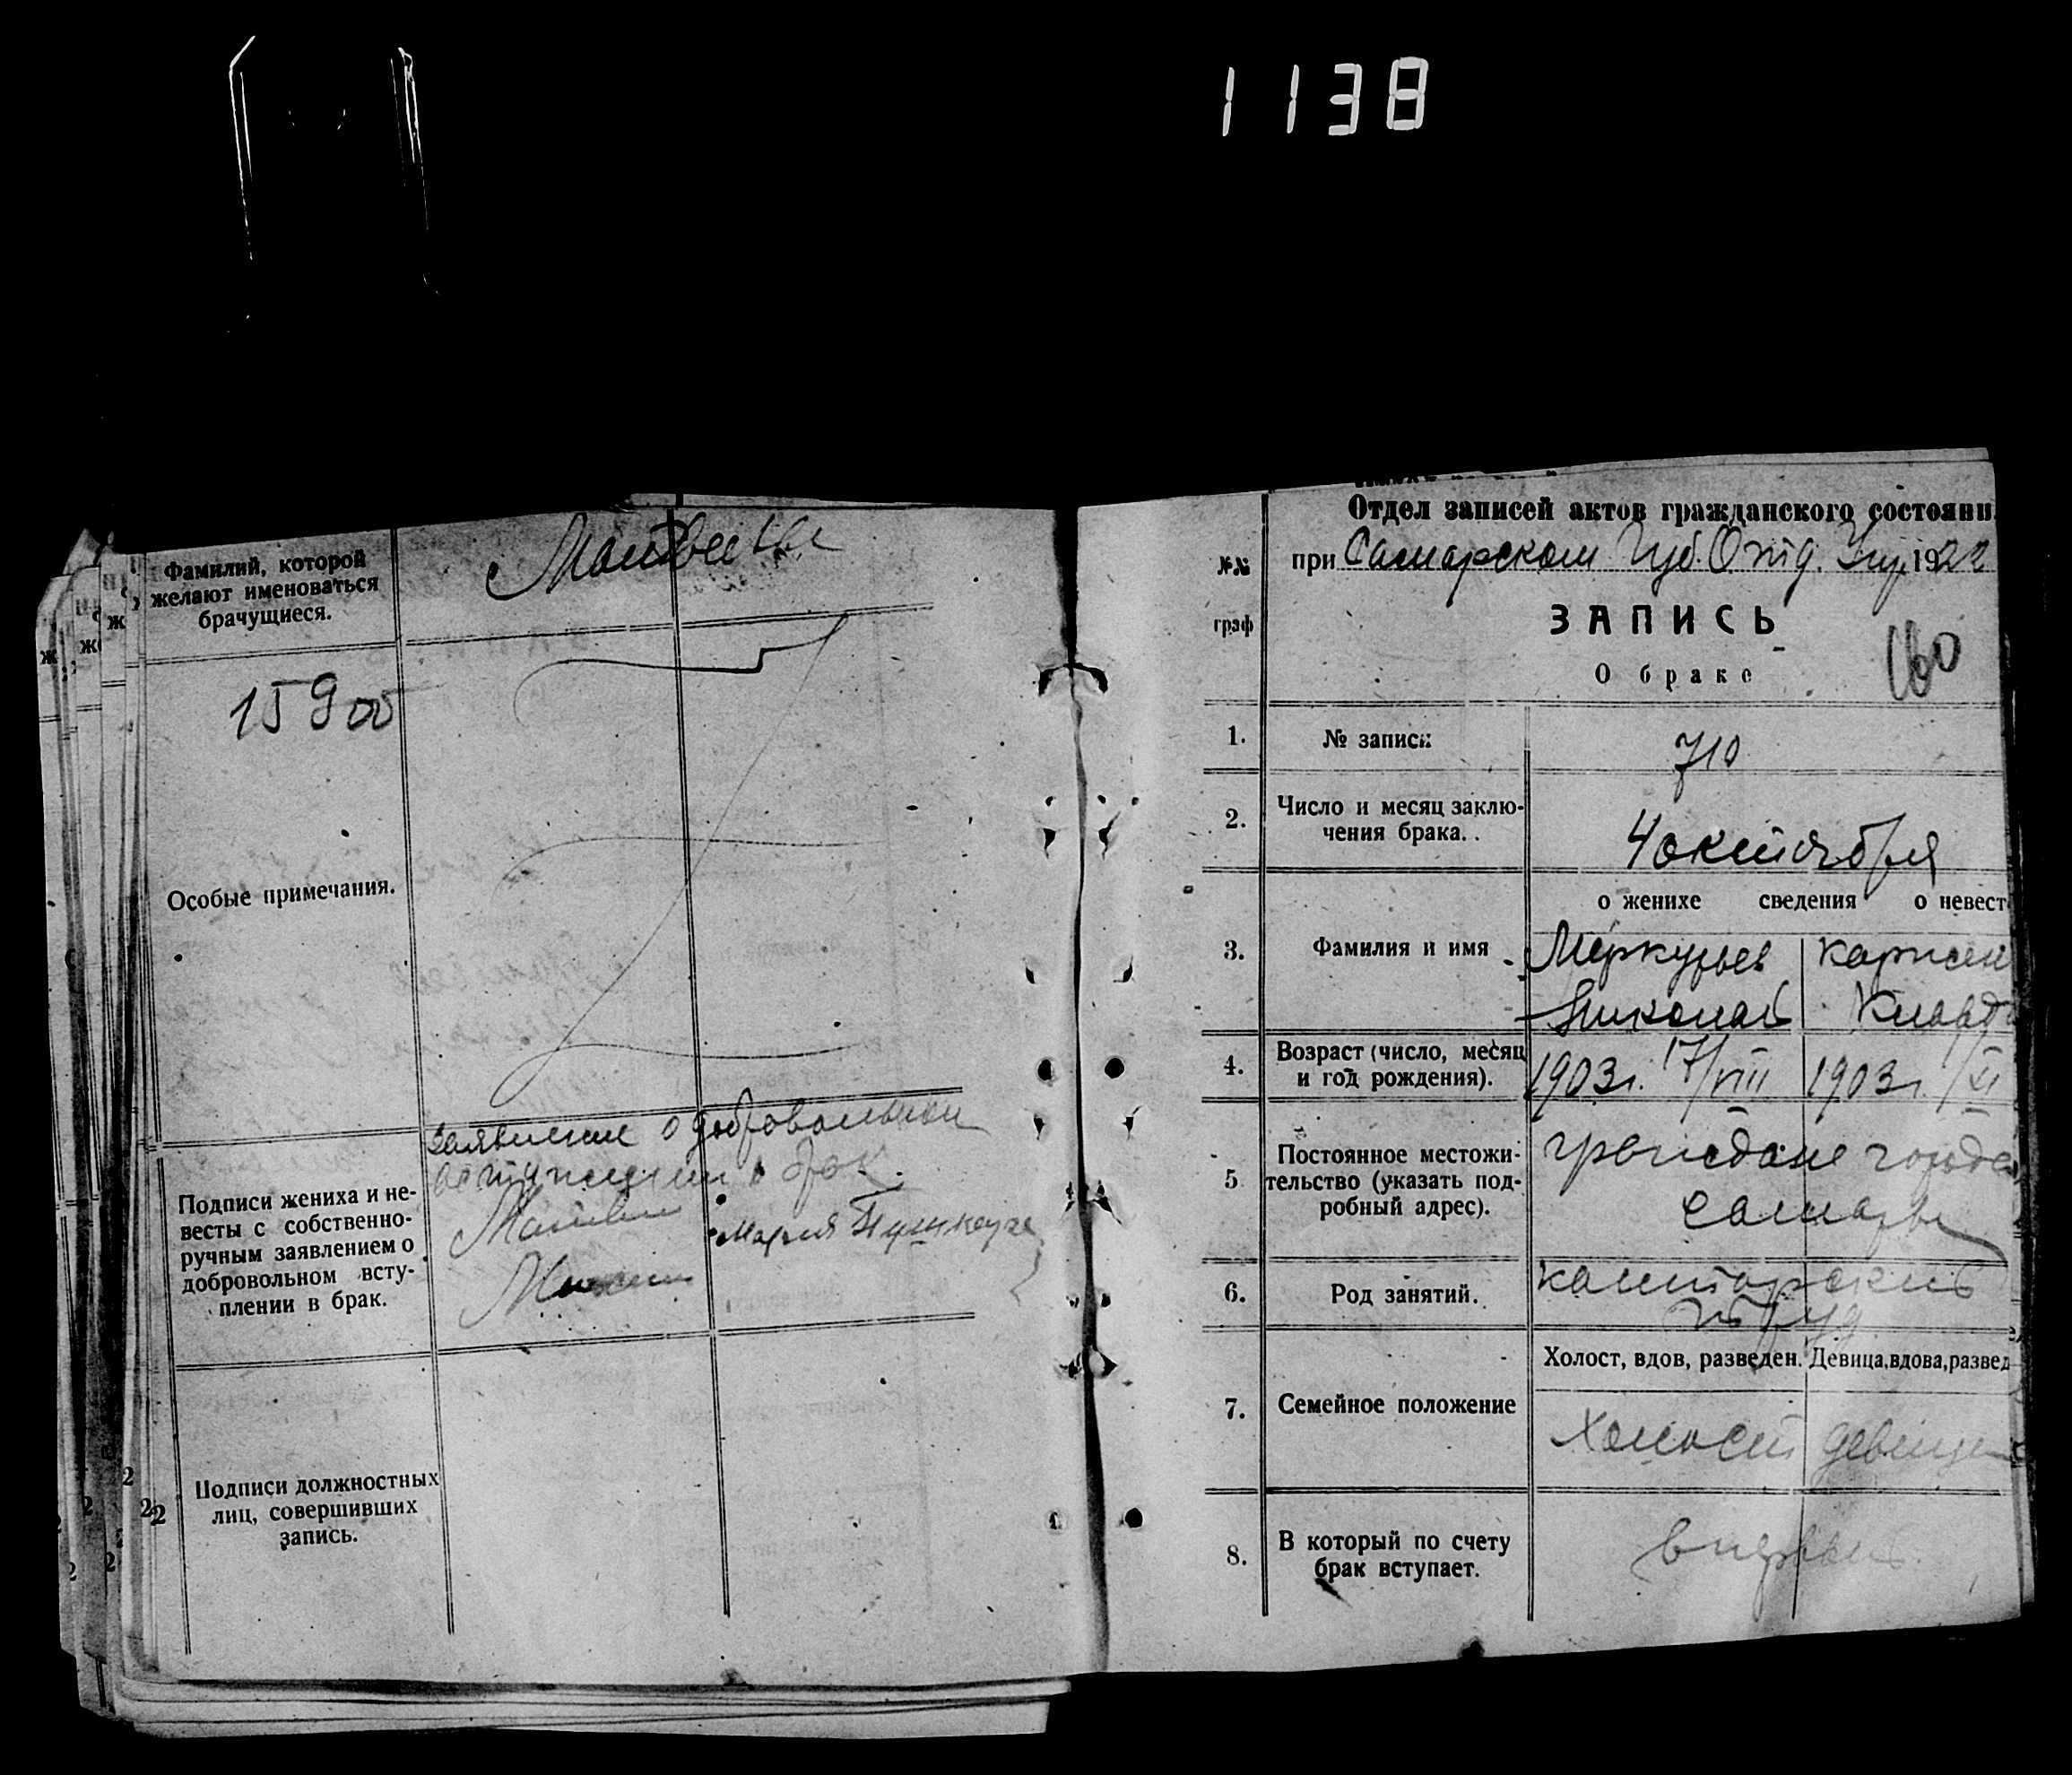 1138
Фамилий, которой
желают именоваться
брачущиеся.
Матвеевы
15900
Особые примечания.
Подписи жениха и не-
весты с собственно-
ручным заявлением о
добровольном всту-
плении в брак.
заявление о добровольном
вступлении в брак
Матвеев
Мария
Подписи должностных
лиц, совершивших
запись.
22
Отдел записей актов гражданского состояни
при Самарском Губ. Отд. Упр. 1922
№№
граф
ЗАПИСЬ
О браке
160
1. № записи 710
2. Число и месяц заклю-
чения брака. . 4 октября
о женихе сведения о невест
3. Фамилия и имя Меркурьев
Николай Клавд
4. Возраст (число, месяц
и год рождения). 1903г. 17/VIII 1903г. /XI
5 Постоянное местожи-
тельство (указать под-
робный адрес). граждане города
Самары
6. Род занятий. канторский
труд
Холост, вдов, разведен. Девица,вдова,развед
7. Семейное положение холост девица
8. В который по счету
брак вступает. впервые